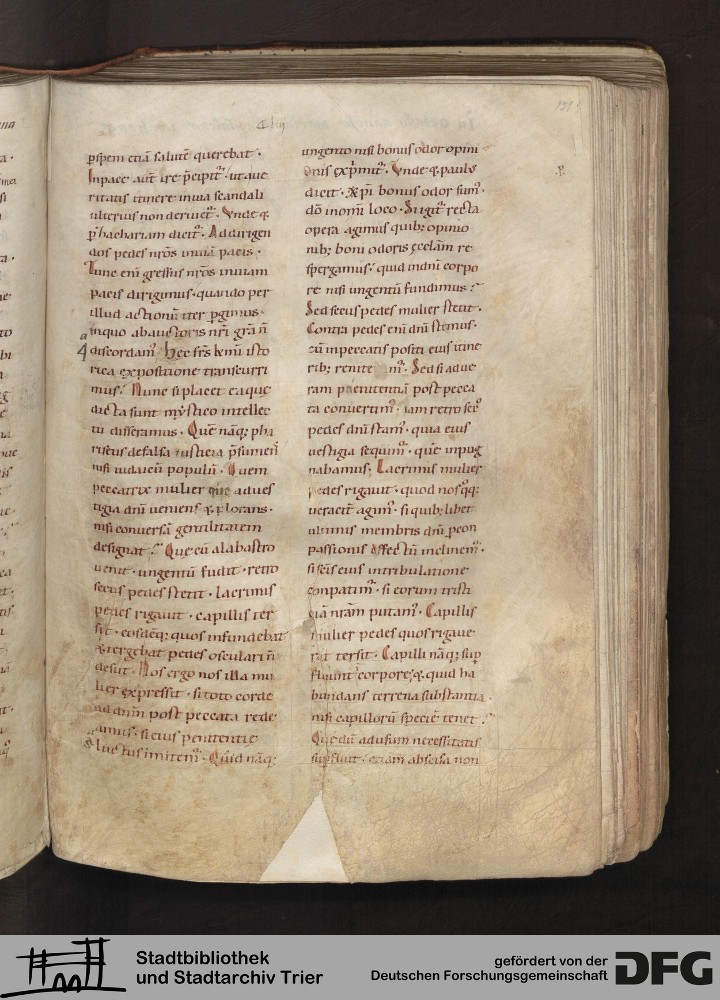 p spem etiã salutẽ querebat ·
In pace aut̃ ire p̃cipit᷑ · ut a ue
ritatis itinere in uia scandali
ulterius non deriuet᷑ · Vnde ⁊
p̱ zachariam dicit᷑ · Ad dirigen
dos pedes nr̃os in uiã pacis ·
Tunc eni gressus nr̃os in uiam
pacis dirigimus · quando per
illud actionũ iter pgimus ·
in quo ab auctoris nr̃i gr̃a ñ
discordam᷑ · Hec fr̃s kmi isto
rica expositione transcurri
mus · Nunc si placet ea que
dicta sunt mystico intellec
tu disseramus · Quẽ nãq; pha
riseus de falsa iusticia p̃sumens
nisi iudaicũ populũ · Quem
peccatrix mulier que ad ues
tigia dñi ueniens ⁊ plorans ·
nisi conuersã gentilitatem
designat · Que cũ alabastro
uenit · ungentũ fudit · retro
secus pedes stetit · lacrimis
pedes rigauit · capillis ter
sit · eosdẽq; quos infundebat
⁊ tergebat pedes osculari ñ
desiit · Nos ergo nos illa mu
lier expressit · si toto corde
ad dñm post peccata rede
amus · si eius penitentie
luctus imitem᷑ · Quid nãq;
131
ungento nisi bonus odor opini
onis exp̃mit᷑ · Vnde ⁊ paulus
dicit · Xp̃i bonus odor sum᷑
dõ in om̃i loco · Si igit᷑ recta
opera agimus quib; opinio
nib; boni odoris ecclãm re
spergamus · quid in dñi corpo
re nisi ungentũ fundimus ·
Sed secus pedes mulier stetit ·
Contra pedes eni dñi stetimus ·
cũ in peccatis positi eius itine
rib; renite m᷑ · Sed si ad ue
ram penitentiã post pecca
ta conuertim᷑ · iam retro sec᷑
pedes dñi stam᷑ · quia eius
uestigia sequim᷑ · quẽ inpug
nabamus · Lacrimis mulier
pedes rigauit · quod nos qq;
ueracit̃ agim᷑ · si quib; libet
ultimis membris dñi p con
passionis affectũ inclinem᷑ ·
si scĩs eius in tribulatione
conpatim᷑ · si eorum tristi
ciã nr̃am putam᷑ · Capillis
mulier pedes quos rigaue
rat tersit · Capilli nãq; sup
fluunt corpore · ⁊ quid ha
bundans terrena substantia ·
nisi capillorũ speciẽ tenet ·
Que dũ ad usum necessitatis
supfluit · etiam abscisa non
Stadtbibliothek
und Stadtarchiv Trier
gefördert von der
Deutschen Forschungsgemeinschaft
DFG